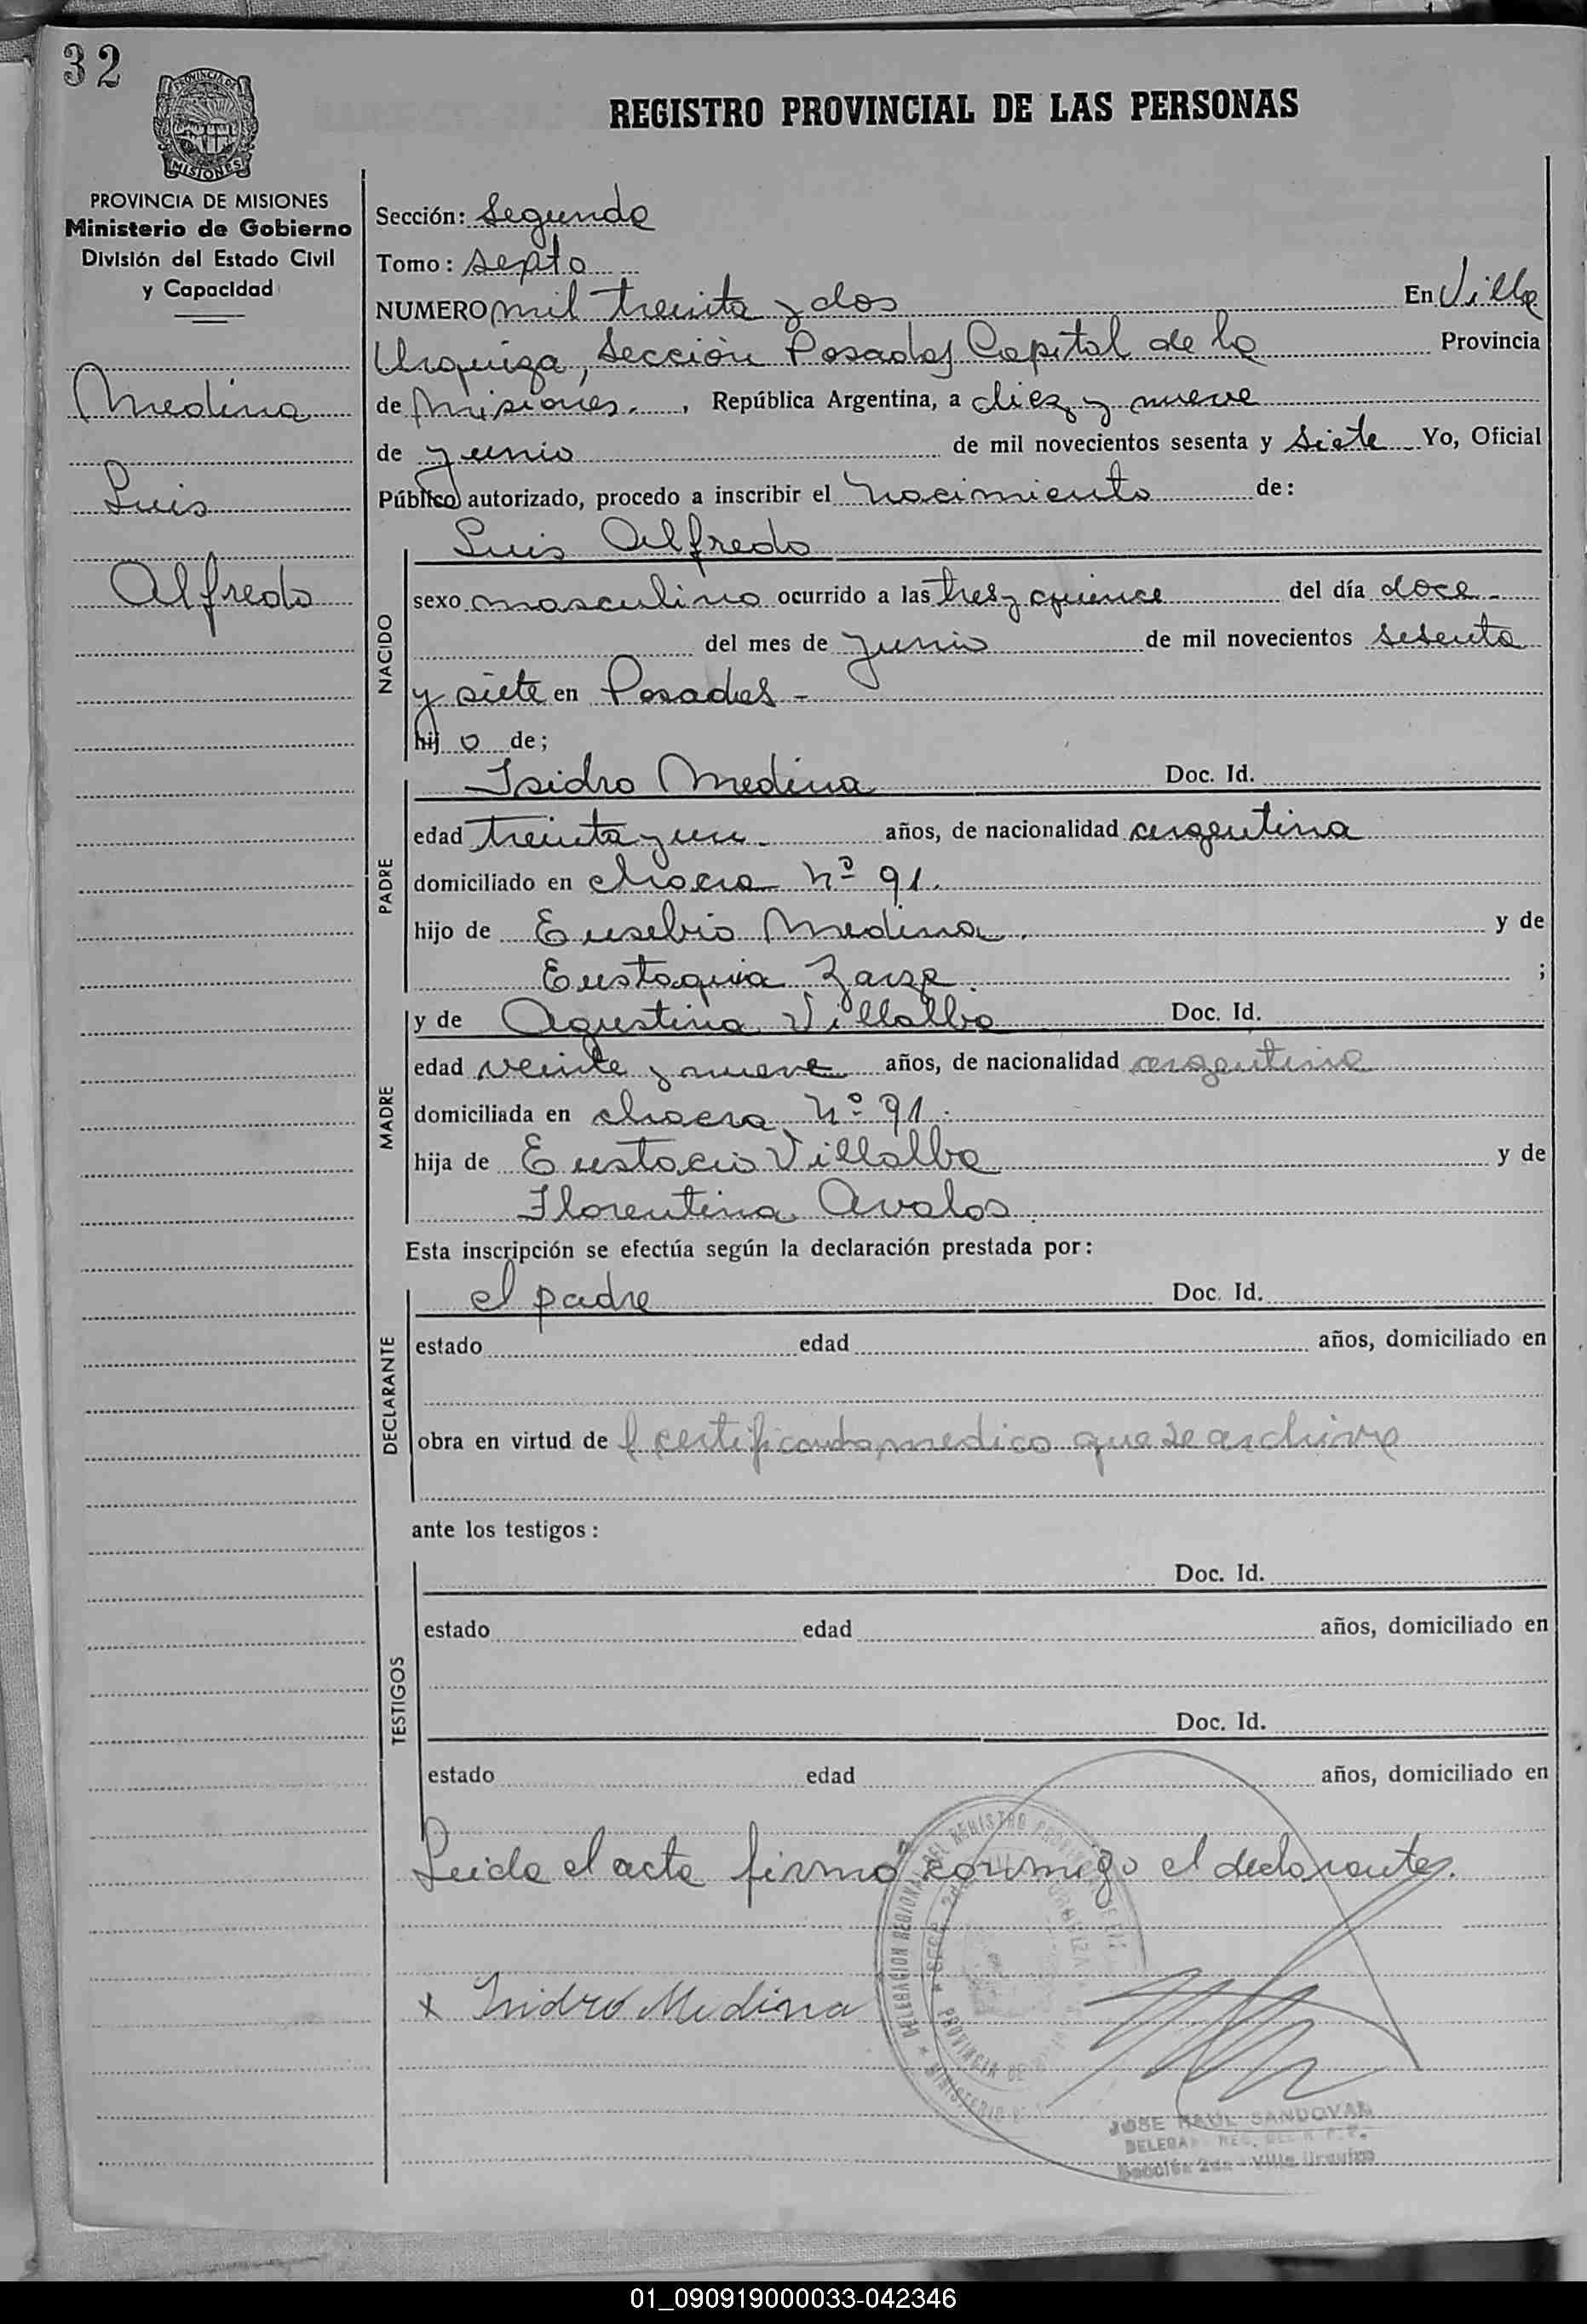 32
PROVINCIA DE MISIONES
REGISTRO PROVINCIAL DE LAS PERSONAS
PROVINCIA DE MISIONES
Ministerio de Gobierno
División del Estado Civil
y Capacidad
Medina
Luis
Alfredo
Sección: Segunda
Tomo: septo
NUMERO mil treinta y dos En Villa
Urquiza, Sección Posadas Capital de la Provincia
de Misiones. , República Argentina, a diez y nueve
de junio de mil novecientos sesenta y siete Yo, Oficial
Público autorizado, procedo a inscribir el nacimiento de:
Luis Alfredo
NACIDO
sexo masculino ocurrido a las tres y quince del día doce -
del mes de junio de mil novecientos sesenta
y siete en Posadas -
hij o de;
PADRE
Isidro Medina Doc. Id.
edad treinta y un - años, de nacionalidad argentina
domiciliado en chacra Nº 91.
hijo de Eusebio Medina. y de
Eustaquia . ;
MADRE
y de Agustina Villalba Doc. Id.
edad veinte y nueve años, de nacionalidad argentina
domiciliada en chacra Nº 91.
hija de Eustacio Villalba y de
Florentina Avalos.
Esta inscripción se efectúa según la declaración prestada por:
DECLARANTE
el padre Doc. Id.
estado edad años, domiciliado en
obra en virtud de l certificado medico que se archiva
ante los testigos:
TESTIGOS
Doc. Id.
estado edad años, domiciliado en
Doc. Id.
estado edad años, domiciliado en
Leida el acta firmó conmigo el declarante.
DELEGACION REGIONAL DEL REGISTRO
PROVINCIA DE
x Isidro Medina
JOSE RAUL SANDOVAL
Sección 2da Villa Urquiza
01_090919000033-042346